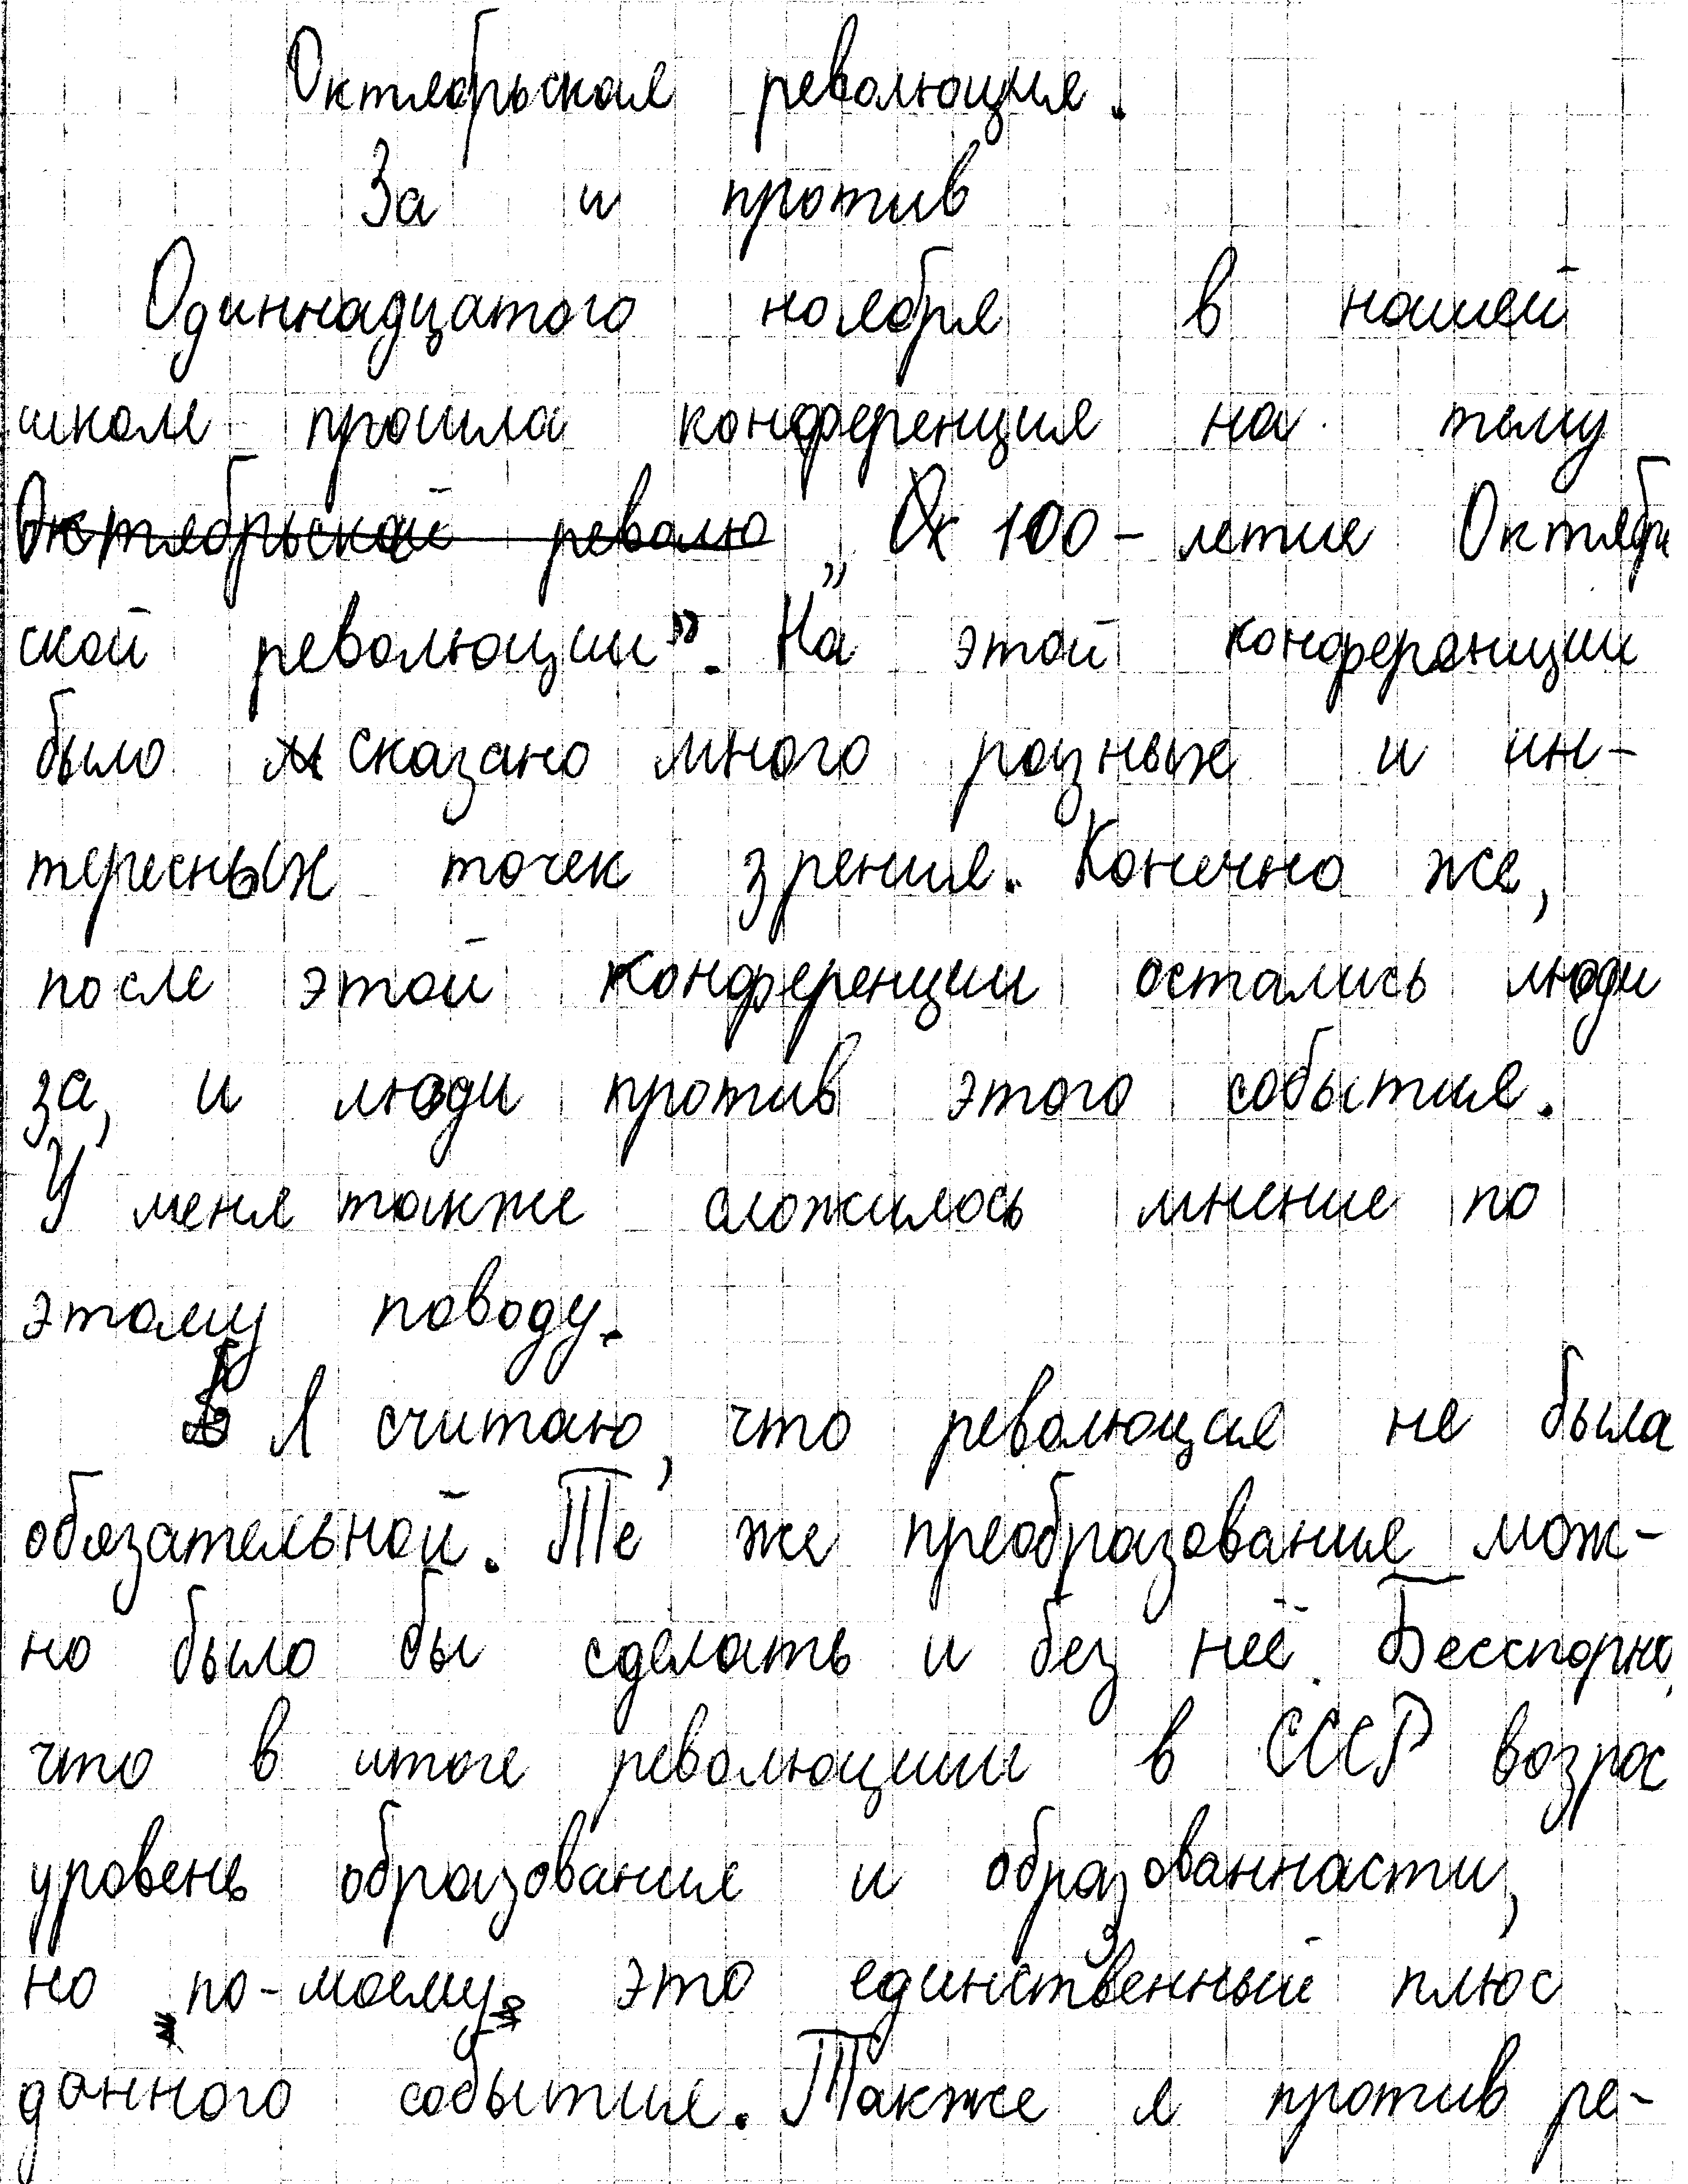 Октябрьская революция.
За и против
Одиннадцатого ноября в нашей
школе прошла конференция на тему
Октябрьской револю „ 100-летие Октябрь
ской революции”. На этой конференции
было сказано много разных и ин-
тересных точек зрения. Конечно же,
после этой конференции остались люди
за, и люди против этого события.
У меня также сложилось мнение по
этому поводу.
Я считаю, что революция не была
обязательной. Те же преобразования мож-
но было бы сделать и без неё. Бесспорно,
что в итоге революции в СССР возрос
уровень образования и образованности,
но по-моему это единственный плюс
данного события. Также я против ре-